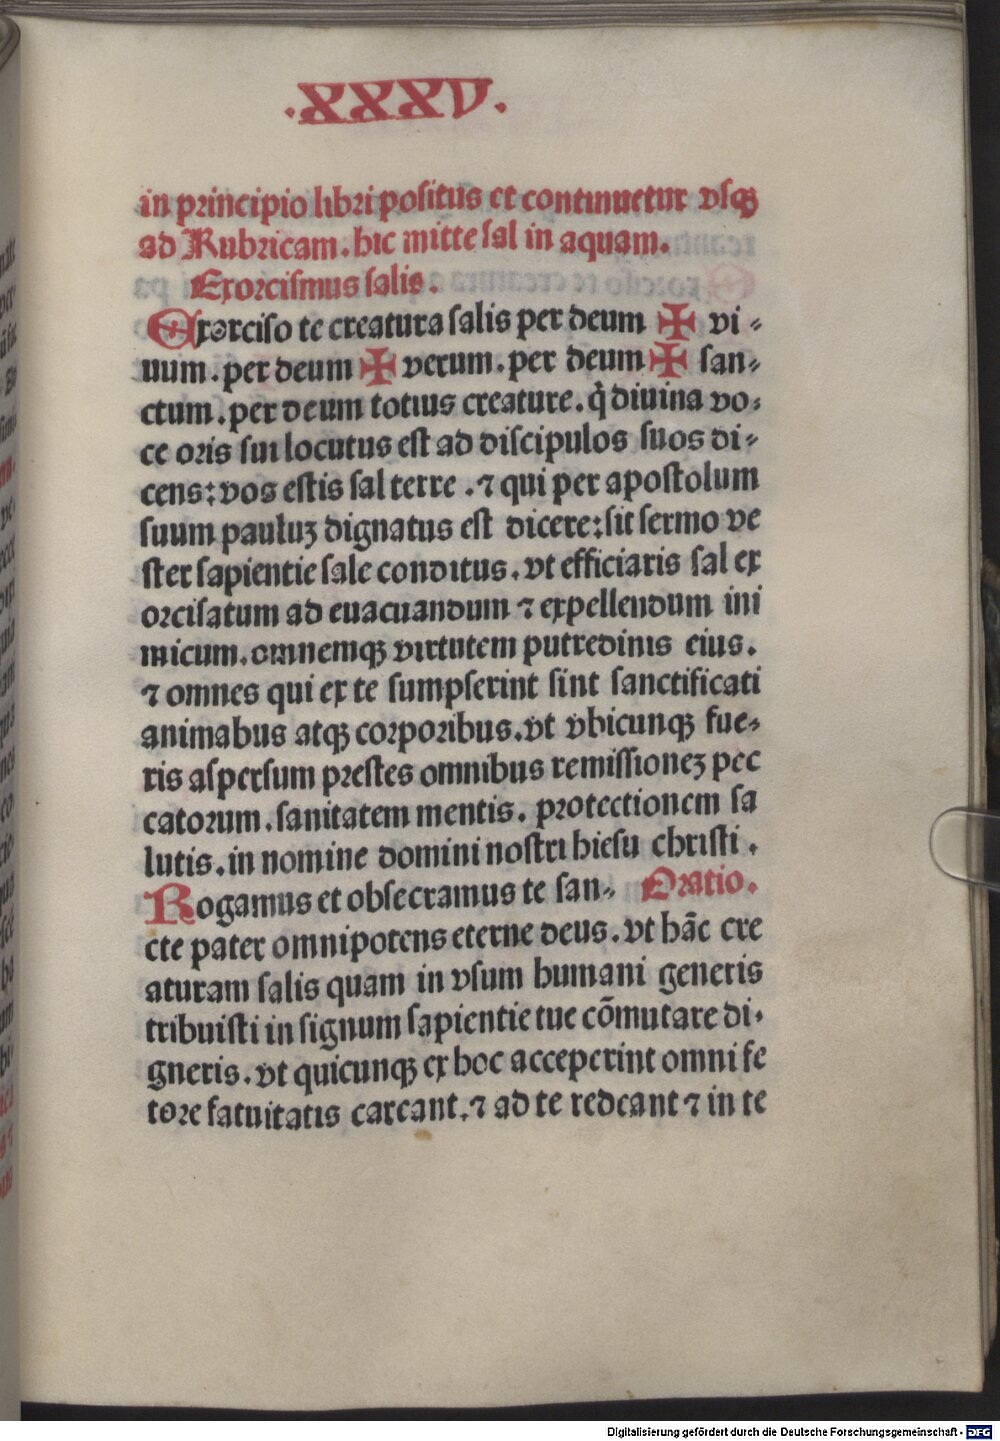 .XXXV.
in principio libri positus et continuetur vsqꝫ
ad Rubricam. hic mitte sal in aquam.
Exorcismus salis.
Exorciso te creatura salis per deum ✠ vi⸗
uum. per deum ✠ verum. per deum ✠ san⸗
ctum. per deum totius creature. q̇ diuina vo⸗
ce oris sui locutus est ad discipulos suos di⸗
cens: vos estis sal terre. ⁊ qui per apostolum
suum pauluʒ dignatus est dicere: sit sermo ve
ster sapientie sale conditus. vt efficiaris sal ex
orcisatum ad euacuandum ⁊ expellendum ini
micum. omnemqꝫ virtutem putredinis eius.
⁊ omnes qui ex te sumpserint sint sanctificati
animabus atqꝫ corporibus. vt vbicunqꝫ fue⸗
ris aspersum prestes omnibus remissioneʒ pec
catorum. sanitatem mentis. protectionem sa
lutis. in nomine domini nostri hiesu christi.
Rogamus et obsecramus te san⸗ Oratio.
cte pater omnipotens eterne deus. vt hāc cre
aturam salis quam in vsum humani generis
tribuisti in signum sapientie tue cōmutare di⸗
gneris. vt quicunqꝫ ex hoc acceperint omni fe
tore fatuitatis careant. ⁊ ad te redeant ⁊ in te
Digitalisierung gefördert durch die Deutsche Forschungsgemeinschaft - DFG